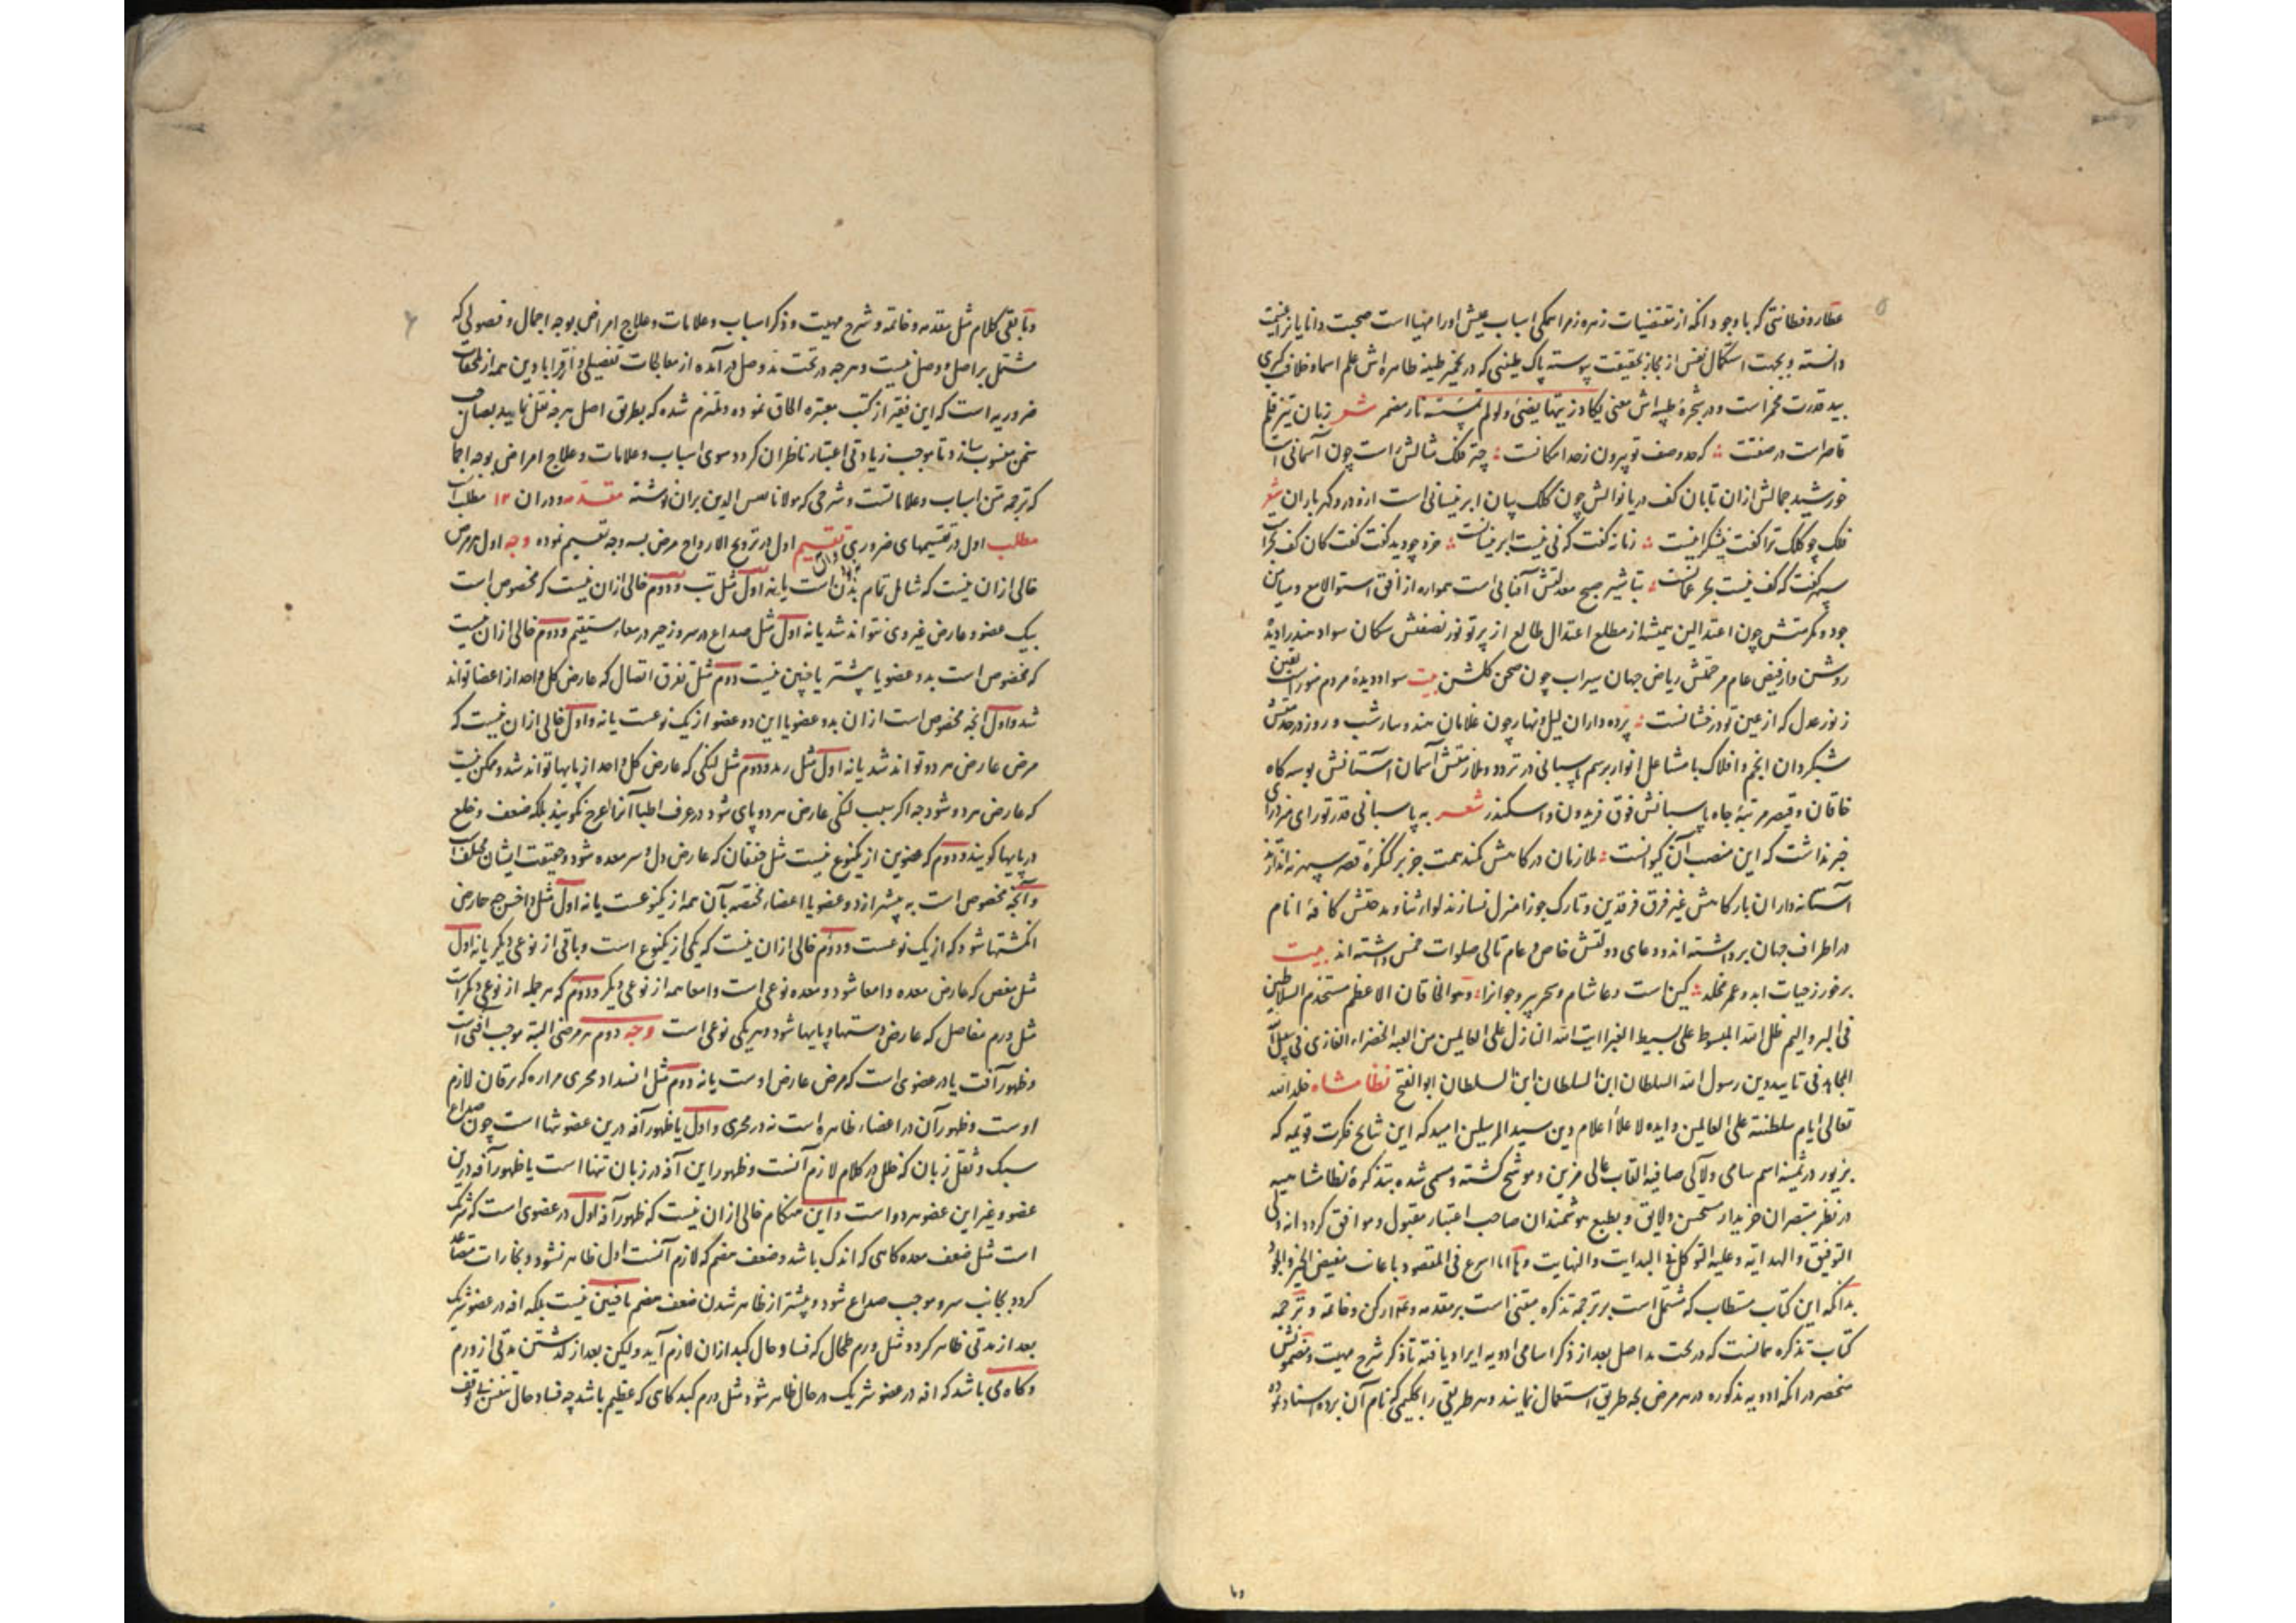 عطارد فطانتی که با وجود آنکه از مقتضیات زهره زهرا همکی اسباب عیش او را مهیا است صحبت دانایانرا غنیمت
دانسته و بجهت استکمال نفس از مجاز بحقیقت پیوسته پاک طینتی که در تخمیر طینه طاهره اش علم اسما و خلافت کبری
بید قدرت مخمر است و در شجرهٔ طیبه اش معنی یکاد زیتها یضیٔ ولو لم تمسسه نار مضمر شعر زبان تیز قلم
قاصر است در صفتت که حد وصف تو بیرون ز حد امکانست چتر فلک مثالش راست چون آسمانی است
خورشید جمالش ازان تابان کف دریا نوالش چون کلک بیان ابر نیسانی است ازو در و کهر باران شعر
فلک چو کلک ترا کفت نیشکر اینست زمانه کفت که نی نیست ابر نیسانست خرد چو دید کفت کفت کان کف بحر است
سپهر کفت که کف نیست بحر عمانست تباشیر صبح معدلتش آفتابی است همواره از افق استوا لامع و میامن
جود و مکرمتش چون اعتدالین همیشه از مطلع اعتدال طالع از پرتو نور نصفتش سکان سواد هند را دیدهٔ
روشن و از فیض عام مرحمتش ریاض جهان سیراب چون صحن کلشن بیت سواد دیدهٔ مردم منور است یقین
ز نور عدل که از عین تو درفشانست پرده داران لیل و نهار چون غلامان هند و سار شب و روز در خدمتش
شبکردان انجم و افلاک با مشاعل انوار برسم پاسبانی در تردد و ملازمتش آسمان آستانش بوسه کاه
خاقان و قیصر مرتبهٔ جاه پاسبانش فوق فریدون و اسکندر شعر به پاسبانی قدر تو رای می زد رای
خبر نداشت که این منصب آن کیوانست ملازمان درکاهش کمند همت جز بر کنکرهٔ قصر سپهر نه اندازند
آستانه داران بارکاهش غیر فرق فرقدین و تارک جوزا منزل نسازند لوای ثنا و مدحتش کافهٔ انام
در اطراف جهان برداشته اند و دعای دولتش خاص و عام تالی صلوات خمس داشته اند بیت
برخور ز حیات ابد و عمر مخلد کین است دعا شام و سحر پیر و جوانرا و هو الخاقان الاعظم مستخدم السلاطین
فی البر والیم ظل الله المبسوط علی بسیط الغبرا ایت الله النازل علی العالمین من القبه الخضراء الغازی فی سبیل الله
المجاهد فی تایید دین رسول الله السلطان ابن السلطان ابن السلطان ابو الفتح نظامشاه خلد الله
تعالی ایام سلطنته علی العالمین و ایده لاعلاء اعلام دین سید المرسلین امید که این نتایج فکرت قویمه که
بزیور در ثمینه اسم سامی و لآلی صافیه القاب عالی مزین و موشح کشته و مسمی شده بتذکرهٔ نظامشاهیه
در نظر مبتصران خریدار مستحسن و لایق و بطبع هوشمندان صاحب اعتبار مقبول و موافق کردد انه ولی
التوفیق و الهدایه و علیه التوکل فی البدایت و النهایت و ها انا اسرع فی المقصود باعانت مفیض الخیر والجود
بدانکه این کتاب مستطاب که مشتمل است بر ترجمه تذکره مبتنی است بر مقدمه و رکن و خاتمه و ترجمه
کتاب تذکره همانست که در تحت مد اصل بعد از ذکر اسامی ادویه ایراد یافته تا ذکر شرح مهیت و مضمونش
منحصر در آنکه ادویه مذکوره در هر مرض بچه طریق استعمال نمایند و هر طریقی را بحکیمی که نام آن برده اسناد نموده
و تا
و مابقی کلام مثل مقدمه و خاتمه و شرح مهیت و ذکر اسباب و علامات و علاج امراض بوجه اجمال و فصولی که
مشتمل بر اصل و وصل نیست و هر چه در تحت مد وصل در آمده از معالجات تفصیلی و از قرابادین همه از ملحقات
ضروریه است که این فقیر از کتب معتبره الحاق نموده و ملتزم شده که بطریق اصل هر چه نقل نماید بصاحب
سخن منسوب سازد تا موجب زیادتی اعتبار ناظران کردد سوی اسباب و علامات و علاج امراض بوجه اجمال
که ترجمه متن اسباب و علاماتست و شرحی که مولانا نفیس الدین بران نوشته مقدمه و دران ۱۲ مطلب است
مطلب اول در تقسیمهای ضروری تقسیم اول در ترویح الارواح مرض بسه وجه تقسیم نموده وجه اول هر مرض
خالی ازان نیست که شامل تمام بدن است یا نه اول مثل تب و دوم خالی ازان نیست که مخصوص است
بیک عضو و عارض غیر وی نتواند شد یا نه اول مثل صداع در سر و زحیر در معاء مستقیم و دوم خالی ازان نیست
که مخصوص است بدو عضو یا بیشتر یا چنین نیست دوم مثل تفرق اتصال که عارض کل واحد از اعضا تواند
شد و اول آنچه مخصوص است ازان بدو عضو یا این دو عضو از یک نوعست یا نه و اول خالی ازان نیست که
مرض عارض هر دو تواند شد یا نه اول مثل رمد و دوم مثل لنکی که عارض کل واحد از پایها تواند شد و ممکن نیست
که عارض هر دو شود چه اکر سبب لنکی عارض هر دو پای شود در عرف اطبا آنرا عرج نکویند بلکه ضعف و خلع
در پایها کویند و دوم که عضوین از یکنوع نیست مثل خفقان که عارض دل و سر معده شود و حقیقت ایشان مختلف است
و آنچه مخصوص است به بیشتر از دو عضو یا اعضاء مختصه بآن همه از یکنوعست یا نه اول مثل داخس چه عارض
انکشتها شود که از یک نوعست و دوم خالی ازان نیست که یکی از یکنوع است و باقی از نوعی دیکر یا نه اول
مثل مغص که عارض معده و امعا شود و معده نوعی است و امعا همه از نوعی دیکر و دوم که هر جمله از نوعی دیکر است
مثل ورم مفاصل که عارض دستها و پایها شود و هر یکی نوعی است وجه دوم هر مرضی البته موجب آفتی است
و ظهور آفت یا در عضوی است که مرض عارض اوست یا نه دوم مثل انسداد مجری مراره که یرقان لازم
اوست و ظهور آن در اعضاء ظاهره است نه در مجری و اول یا ظهور آفه درین عضو تنها است چون صداع
سبک و ثقل زبان که خلل در کلام لازم آنست و ظهور این آفه در زبان تنها است یا ظهور آفه درین
عضو و غیر این عضو هر دو است و این هنکام خالی ازان نیست که ظهور آفه اول در عضوی است که شریک
است مثل ضعف معده کاهی که اندک باشد و ضعف هضم که لازم آنست اول ظاهر نشود و بخارات متصاعد
کردد بجانب سر و موجب صداع شود و بیشتر از ظاهر شدن ضعف هضم یا چنین نیست بلکه افه در عضو شریک
بعد از مدتی ظاهر کردد مثل ورم طحال که فساد حال کبد ازان لازم آید ولیکن بعد از کذشتن مدتی از ورم
و کاه می باشد که افه در عضو شریک در حال ظاهر شود مثل ورم کبد کاهی که عظیم باشد چه فساد حال تنفس بی توقف